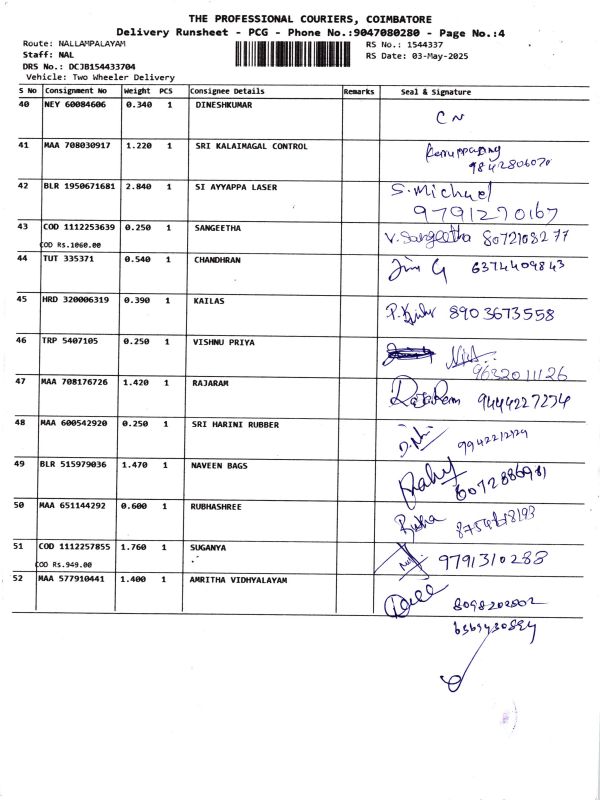 THE PROFESSIONAL COURIERS, COIMBATORE
Delivery Runsheet - PCG - Phone No.:9047080280 - Page No.:4
Route: NALLAMPALAYAM RS No.: 1544337
Staff: NAL RS Date: 03-May-2025
DRS No.: DCJB154433704
Vehicle: Two Wheeler Delivery
S No Consignment No Weight PCS Consignee Details Remarks Seal & Signature
40 NEY 60084606 0.340 1 DINESHKUMAR
CN
41 MAA 708030917 1.220 1 SRI KALAIMAGAL CONTROL
9842806070
42 BLR 1950671681 2.840 1 SI AYYAPPA LASER S.Michael
9791270167
43 COD 1112253639 0.250 1 SANGEETHA V.Sangeetha 8072108277
COD Rs.1060.00
44 TUT 335371 0.540 1 CHANDHRAN 6374409843
45 HRD 320006319 0.390 1 KAILAS
8903673558
46 TRP 5407105 0.250 1 VISHNU PRIYA
9632011126
47 MAA 708176726 1.420 1 RAJARAM RajaRam 9444227274
48 MAA 600542920 0.250 1 SRI HARINI RUBBER
49 BLR 515979036 1.470 1 NAVEEN BAGS
50 MAA 651144292 0.600 1 RUBHASHREE
51 COD 1112257855 1.760 1 SUGANYA 9791310288
COD Rs.949.00
52 MAA 577910441 1.400 1 AMRITHA VIDHYALAYAM
8098202002